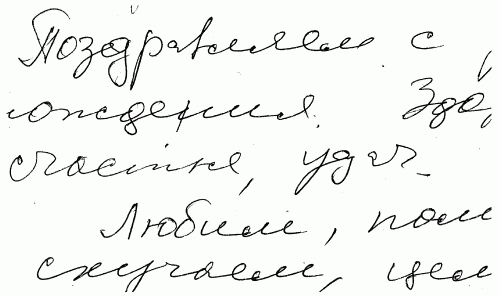 Поздравляем с
ождения. Здо
счастья, удач
Любим, пом
скучаем, цел